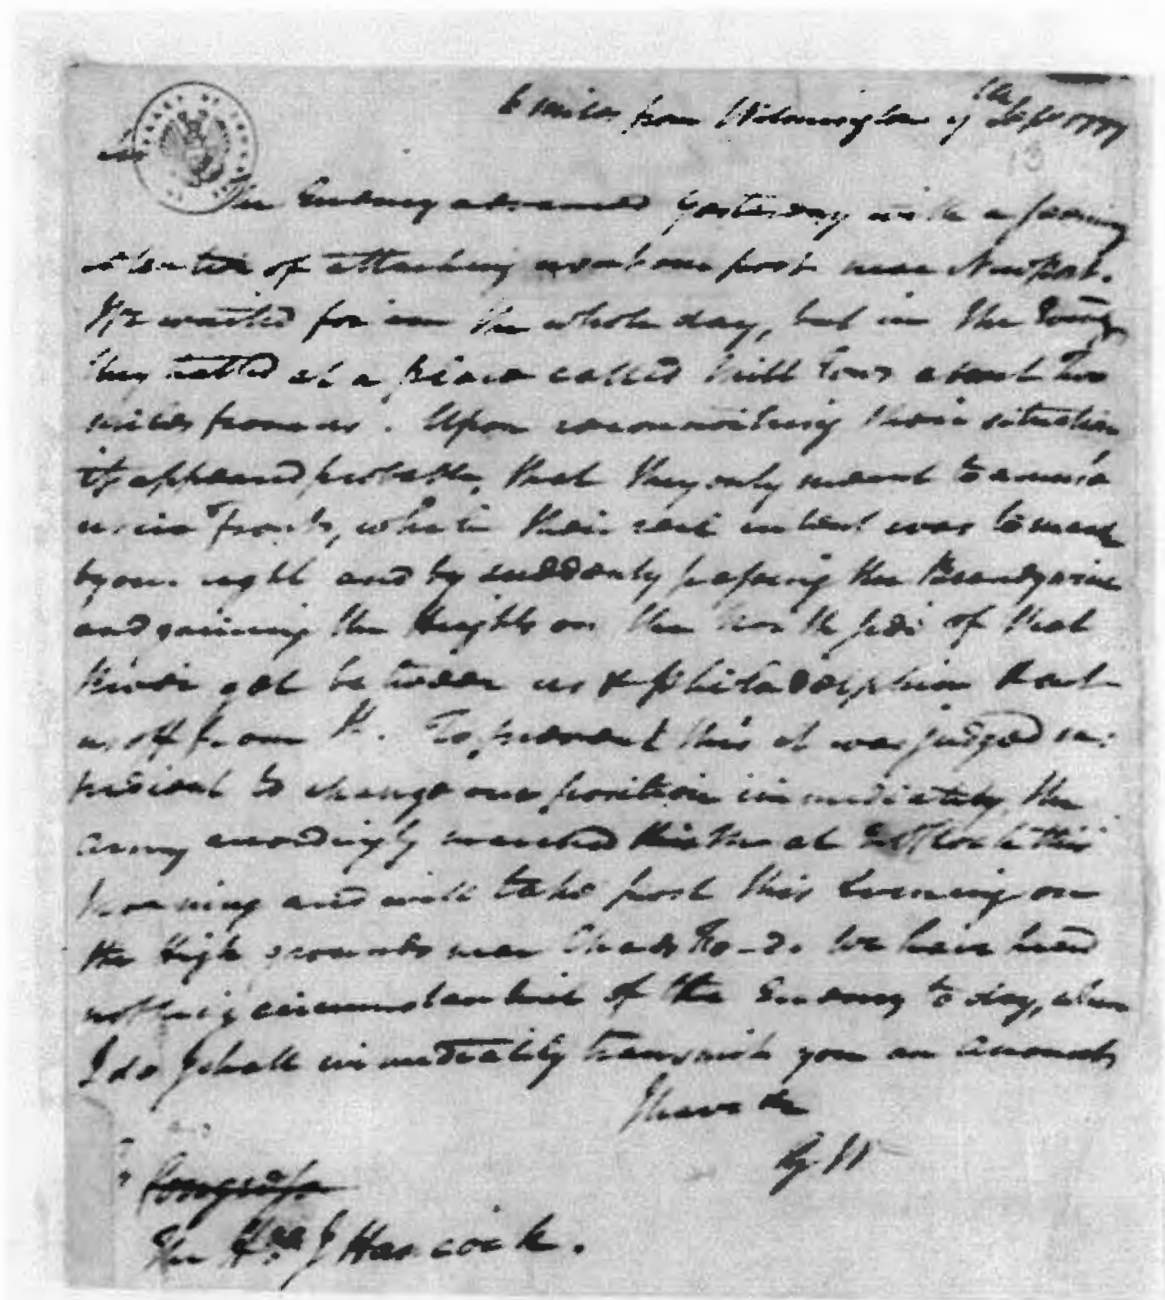 6 Miles from Wilmington 9th Sepr 1777
Sir
The Enemy advanced Yesterday with a seeming
intention of attacking us our post near Newport.
We waited for em the whole day, but in the Eveng
they halted at a place called Mill Town about two
miles from us. Upon reconnoitring their situation,
it appeared probable, that they only meant to amuse
us in Front, while their real intent was to march
by our right and by suddenly passing the Brandywine
and gaining the Heights on the North side of that
River get between us & Philadelphia & cut
us off from it. To prevent this it was judged ex-
pedient to change our position immediately, the
Army accordingly marched at 2 OClock this
morning and will take post this Evening on
the High grounds near Chads Ford. We have heard
nothing circumstantial of the Enemy to day, when
I do I shall immediately transmit you an Account
I have &c
G. W
Congress
The Hon J Hancock.